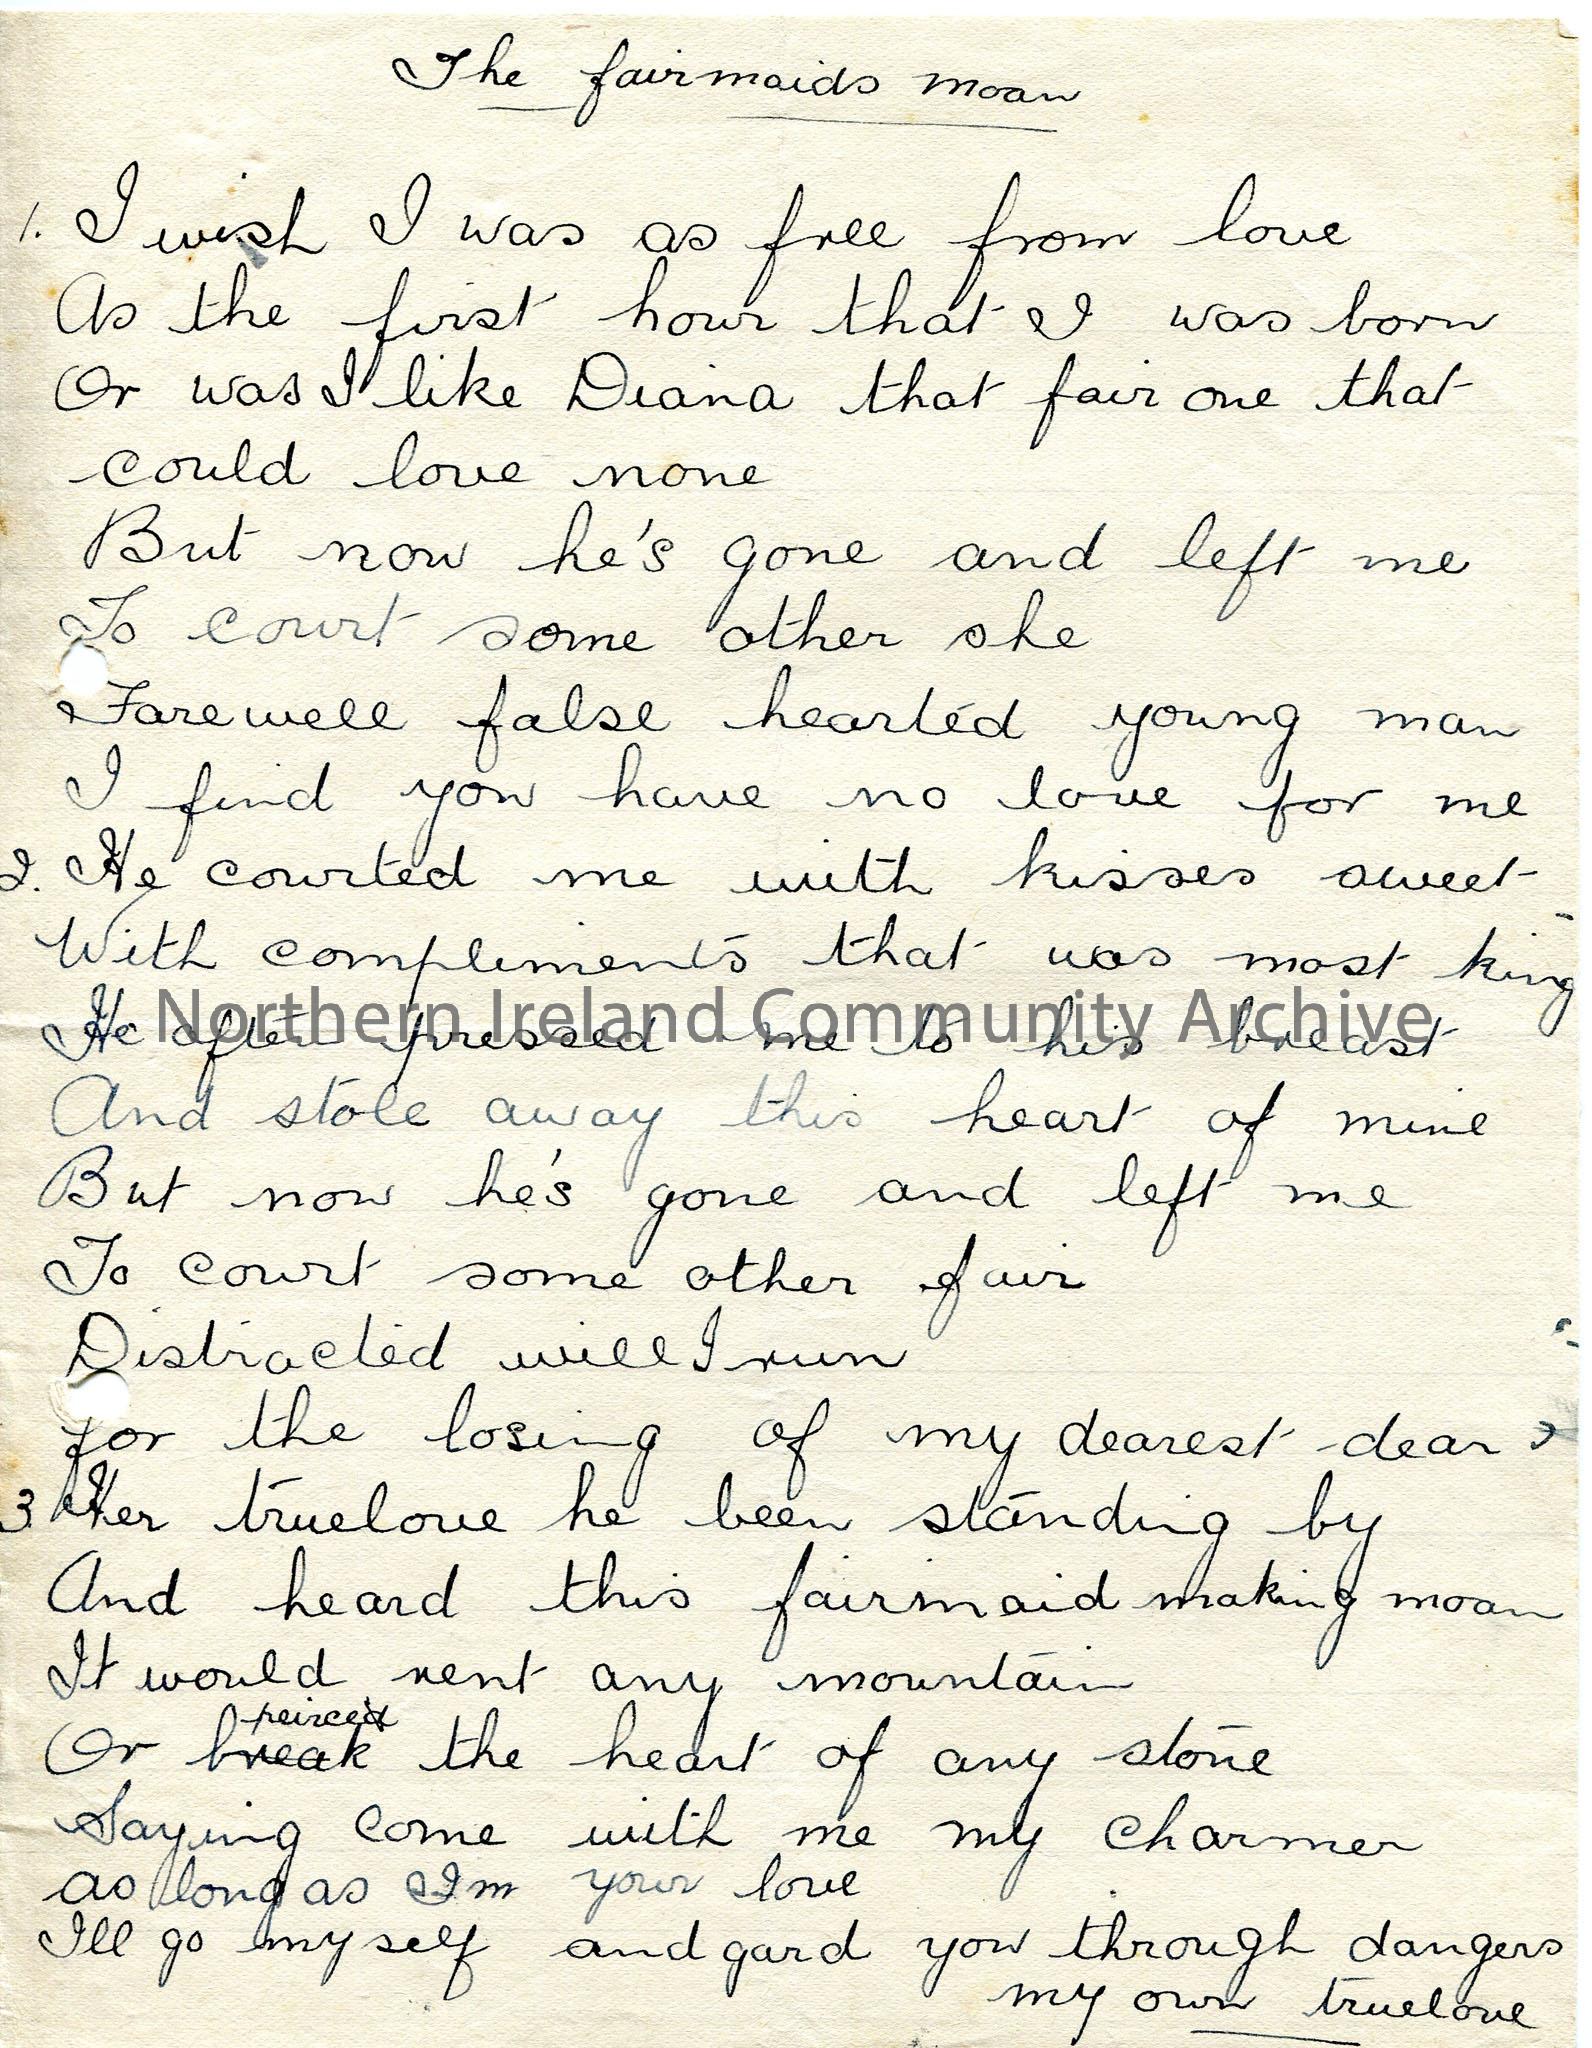 The fairmaids moan
1. I wish I was as free from love
As the first hour that I was born
Or was I like Diana that fair one that
could love none
But now he's gone and left me
To court some other she
Farewell false hearted young man
I find you have no love for me
2. He courted me with kisses sweet
With compliments that was most king
Northern Ireland Community Archive
He often pressed me to his breast
And stole away this heart of mine
But now he's gone and left me
To court some other fair
Distracted will I run
for the losing of my dearest dear
3 Her truelove he been standing by
And heard this fairmaid making moan
It would rent any mountain
peirced
Or break the heart of any stone
Saying come with me my charmer
as long as I'm your love
I'll go myself and gard you through dangers
my own truelove